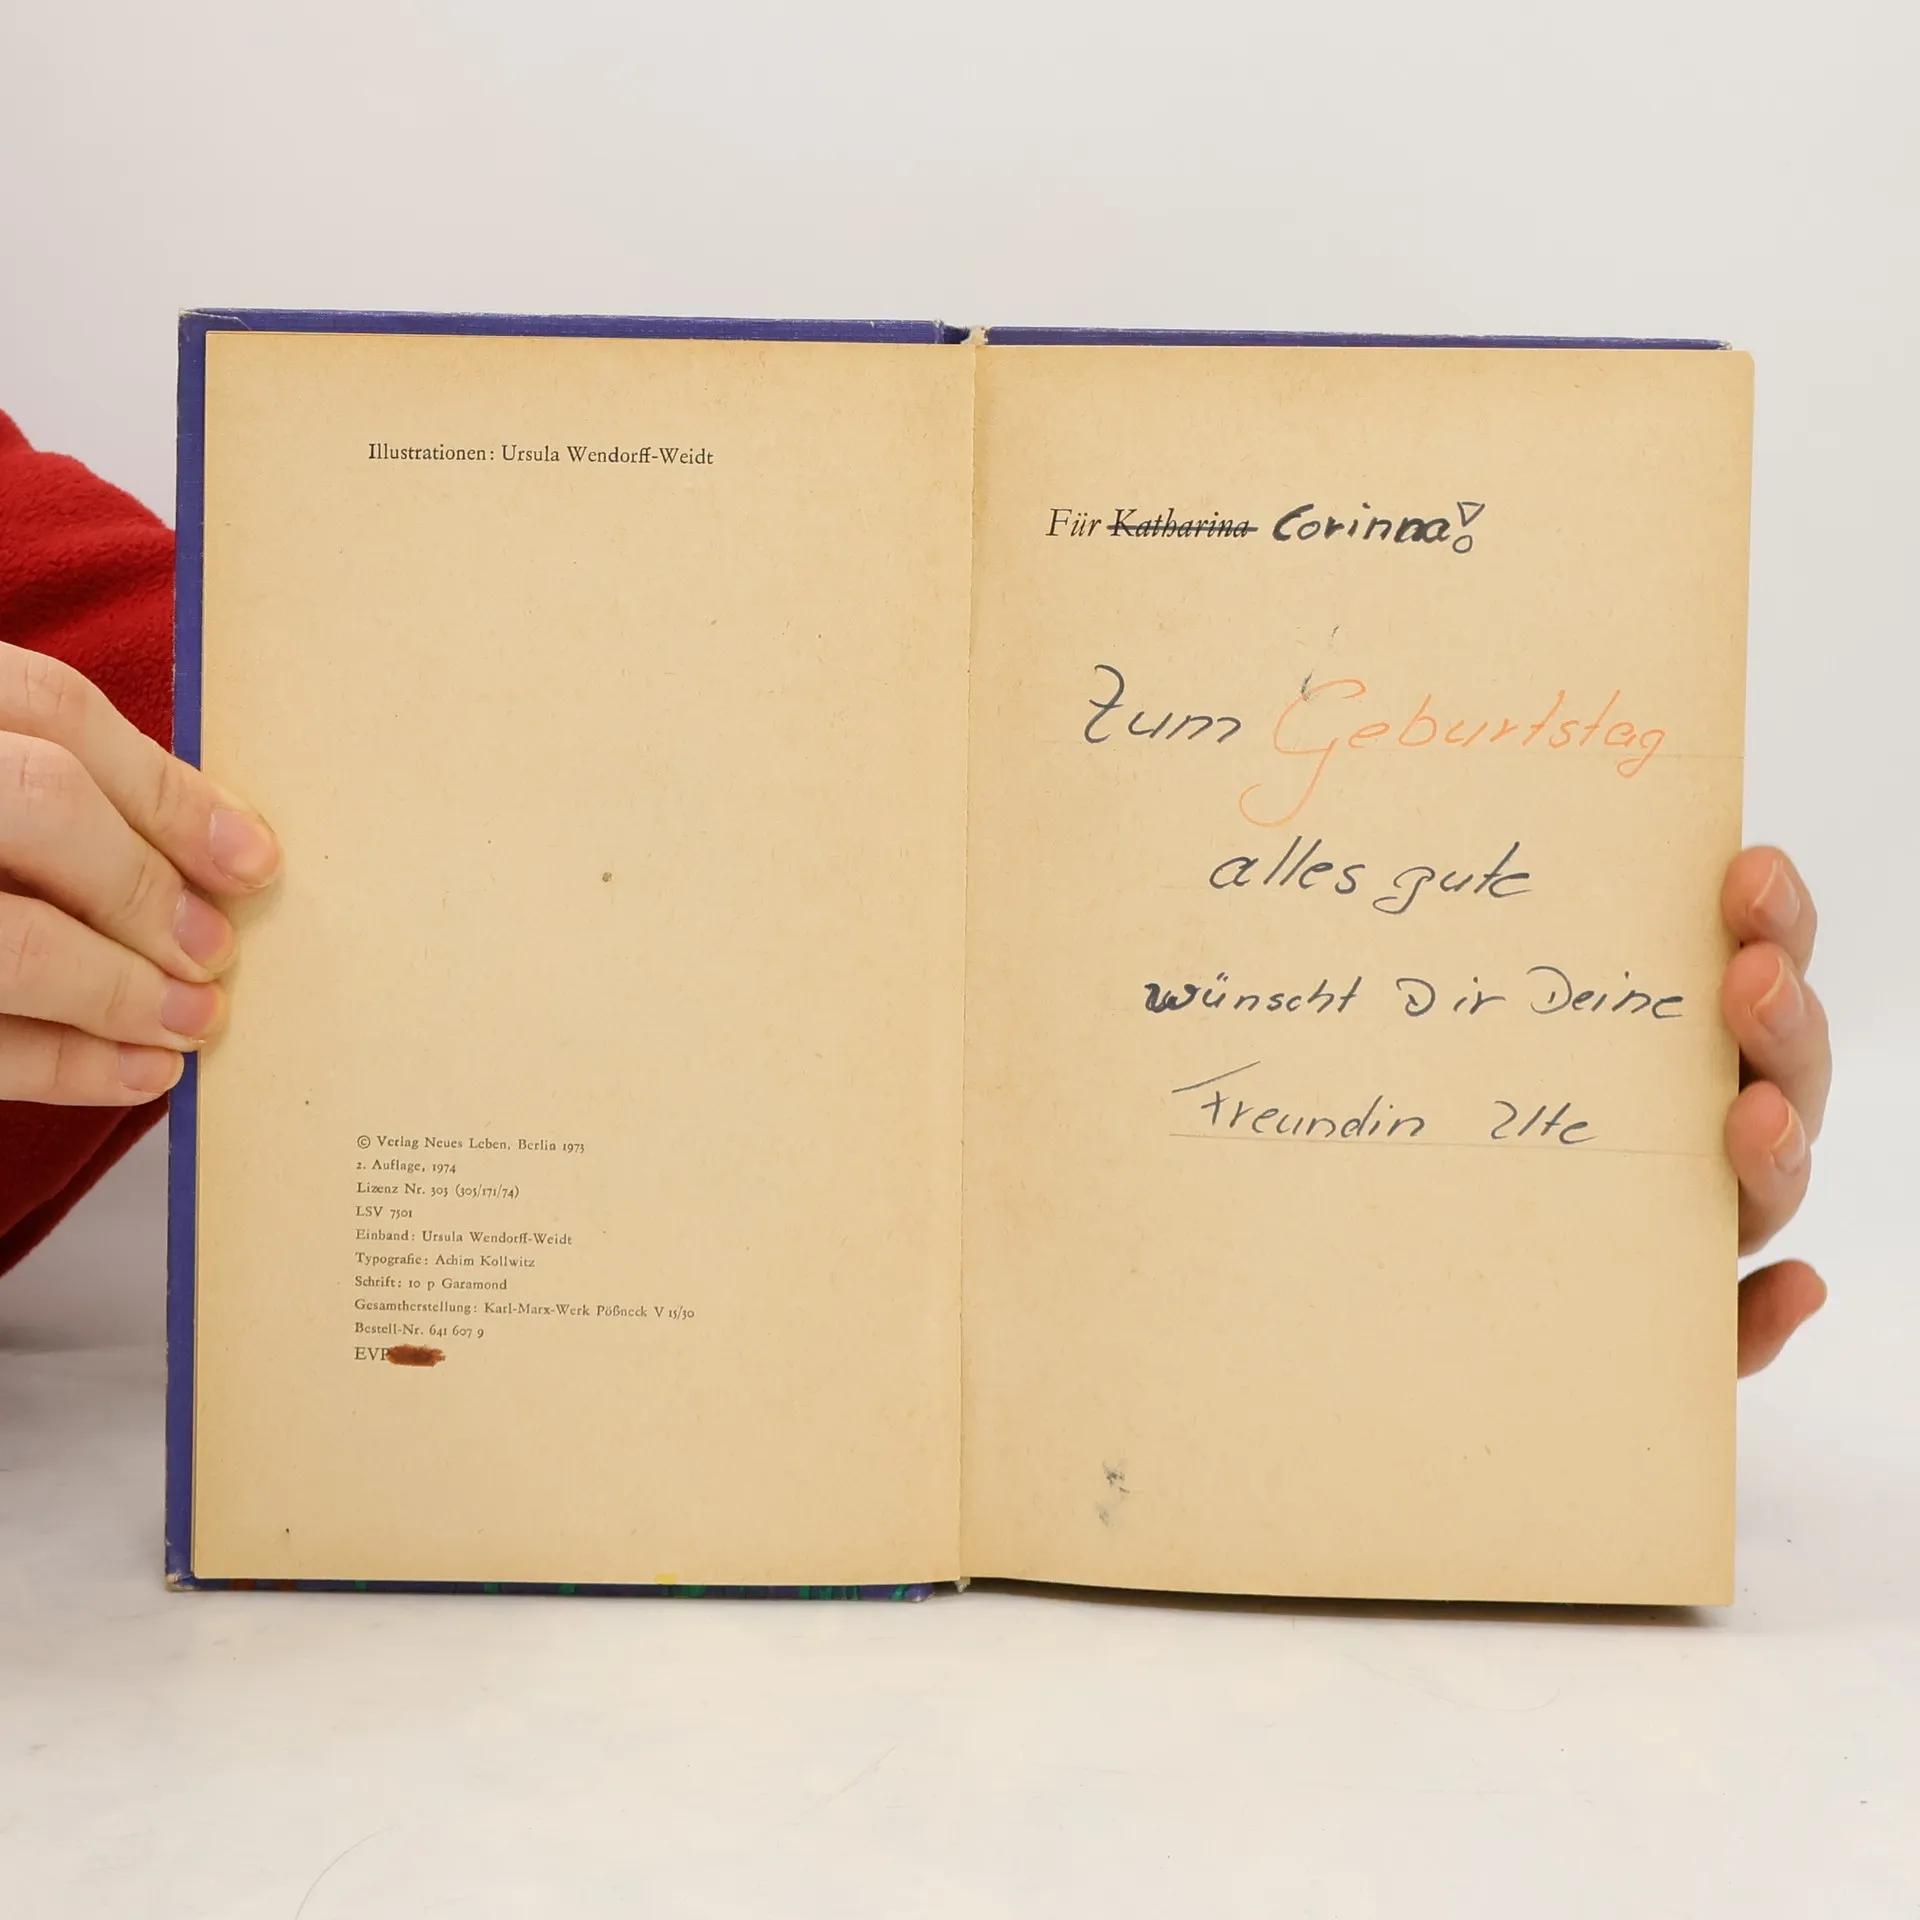 Illustrationen: Ursula Wendorff-Weidt
© Verlag Neues Leben, Berlin 1973
2. Auflage, 1974
Lizenz Nr. 303 (305/171/74)
LSV 7501
Einband: Ursula Wendorff-Weidt
Typografie: Achim Kollwitz
Schrift: 10 p Garamond
Gesamtherstellung: Karl-Marx-Werk Pößneck V 15/30
Bestell-Nr. 641 607 9
EVP
Für Katharina Corinna!
Zum Geburtstag
alles gute
wünscht Dir Deine
Freundin